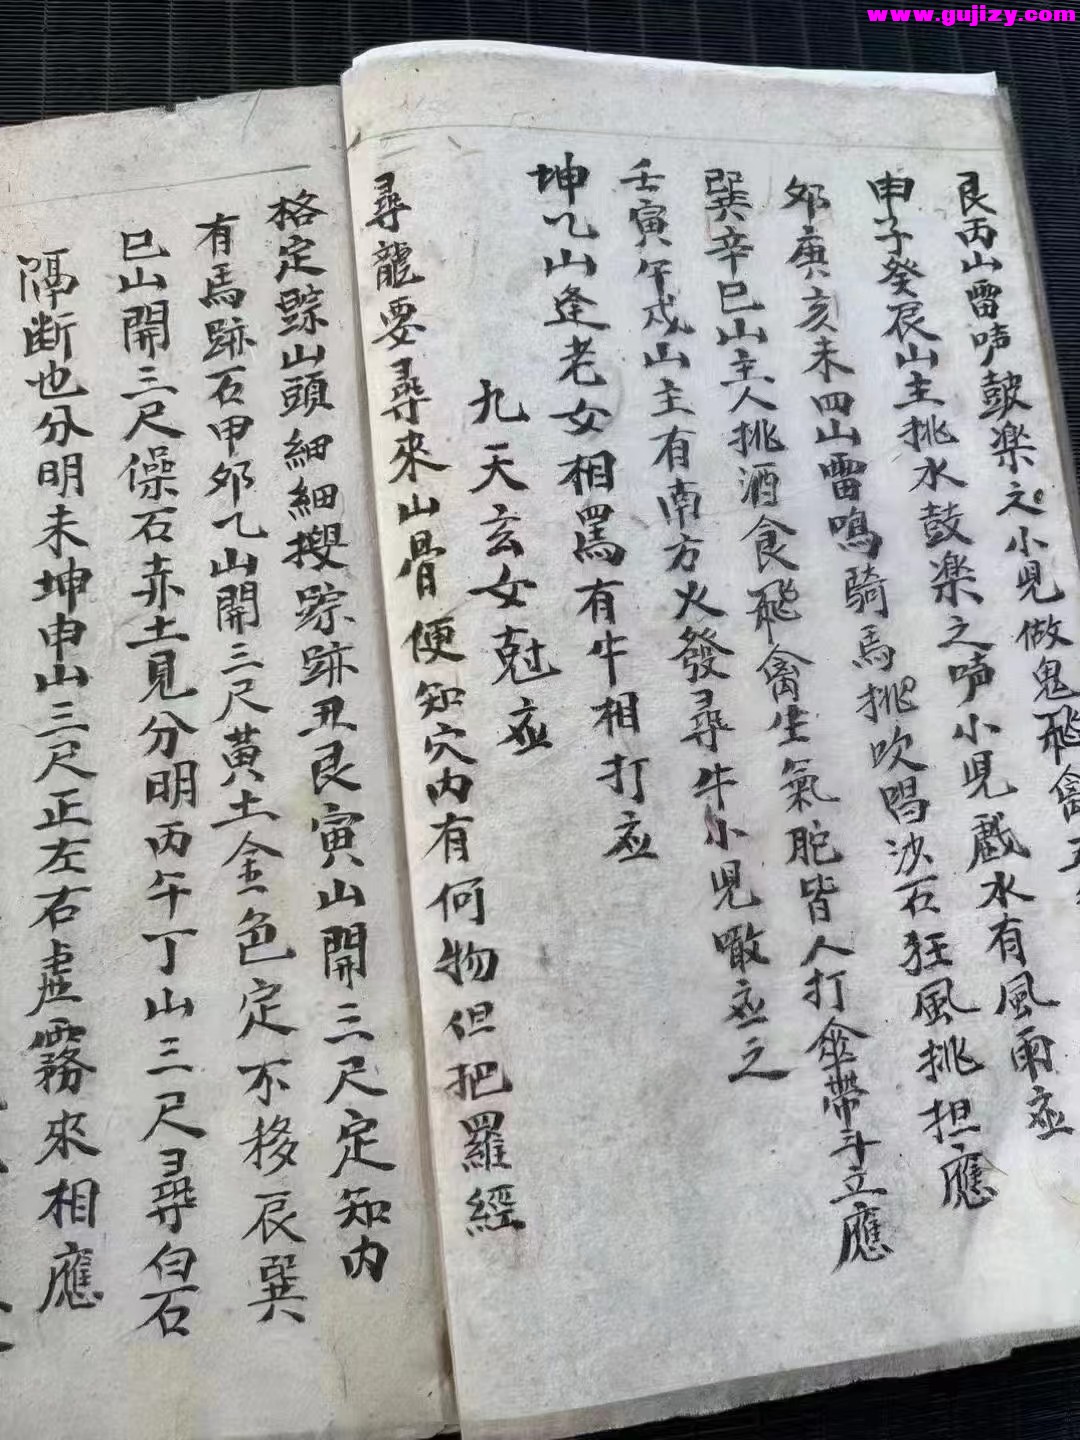 www.gujizy.com
艮丙山雷吽鼓楽之小児做鬼飛禽
申子癸辰山主挑水鼓楽之吽小児戲水有風雨应
夘庚亥未四山雷鳴騎馬挑吹唱沙石狂風挑担應
巽辛巳山主人挑酒食飛禽生氣胣皆人打傘帶斗立應
壬寅午戍山主有南方火發尋牛小児嗽应之
坤乙山逢老女相罵有牛相打应
九天玄女尅应
尋龍要尋來山骨便知穴内有何物但把羅經
格定踪山頭細細搜踪跡丑艮寅山開三尺定知内
有馬跡石甲夘乙山開三尺黃土金色定不移辰巽
巳山開三尺傑石赤土見分明丙午丁山三尺尋白石
隔断也分明未坤申山三尺正左右虛霧來相應